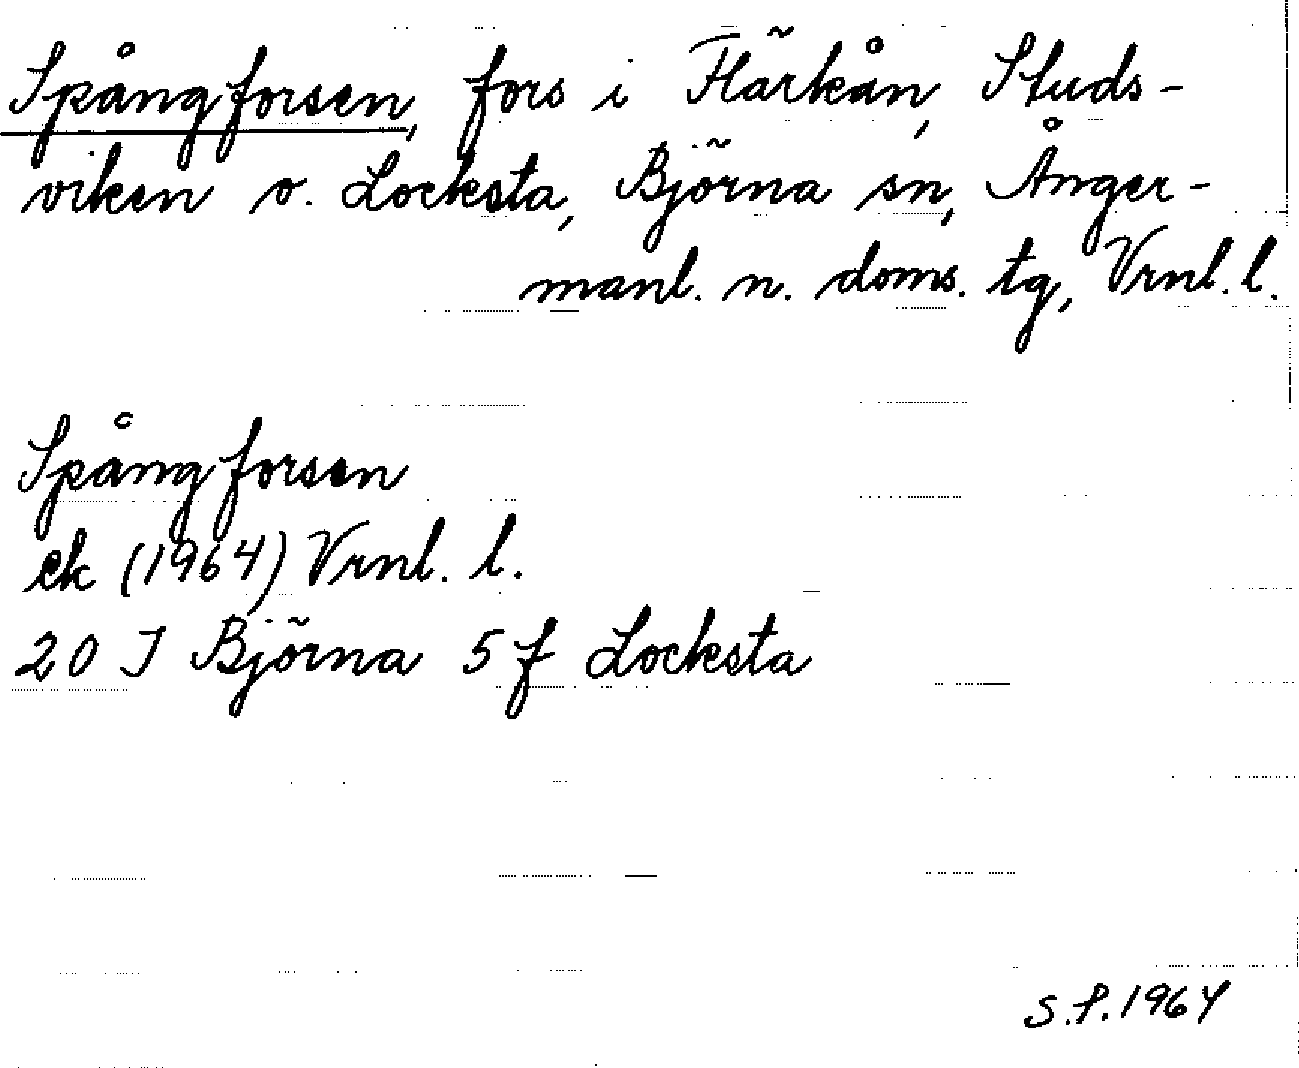 Spångforsen, fors i Flärkån, Studs-
viken o. Locksta, Björna sn, Ånger-
manl. n. doms. tg, Vrnl. l.
Spångforsen
ek (1964) Vrnl. l.
20 J Björna 5 f Locksta
S.P. 1964